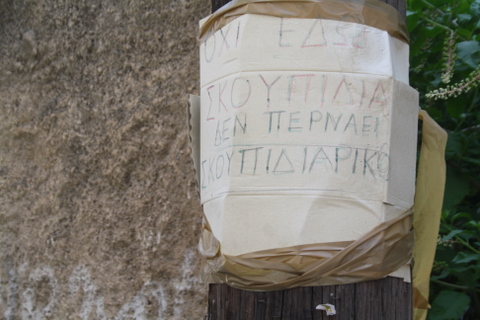 ΟΧΙ ΕΔΩ
ΣΚΟΥΠΙΔΙΑ
ΔΕΝ ΠΕΡΝΑΕΙ
ΣΚΟΥΠΙΔΙΑΡΙΚΟ